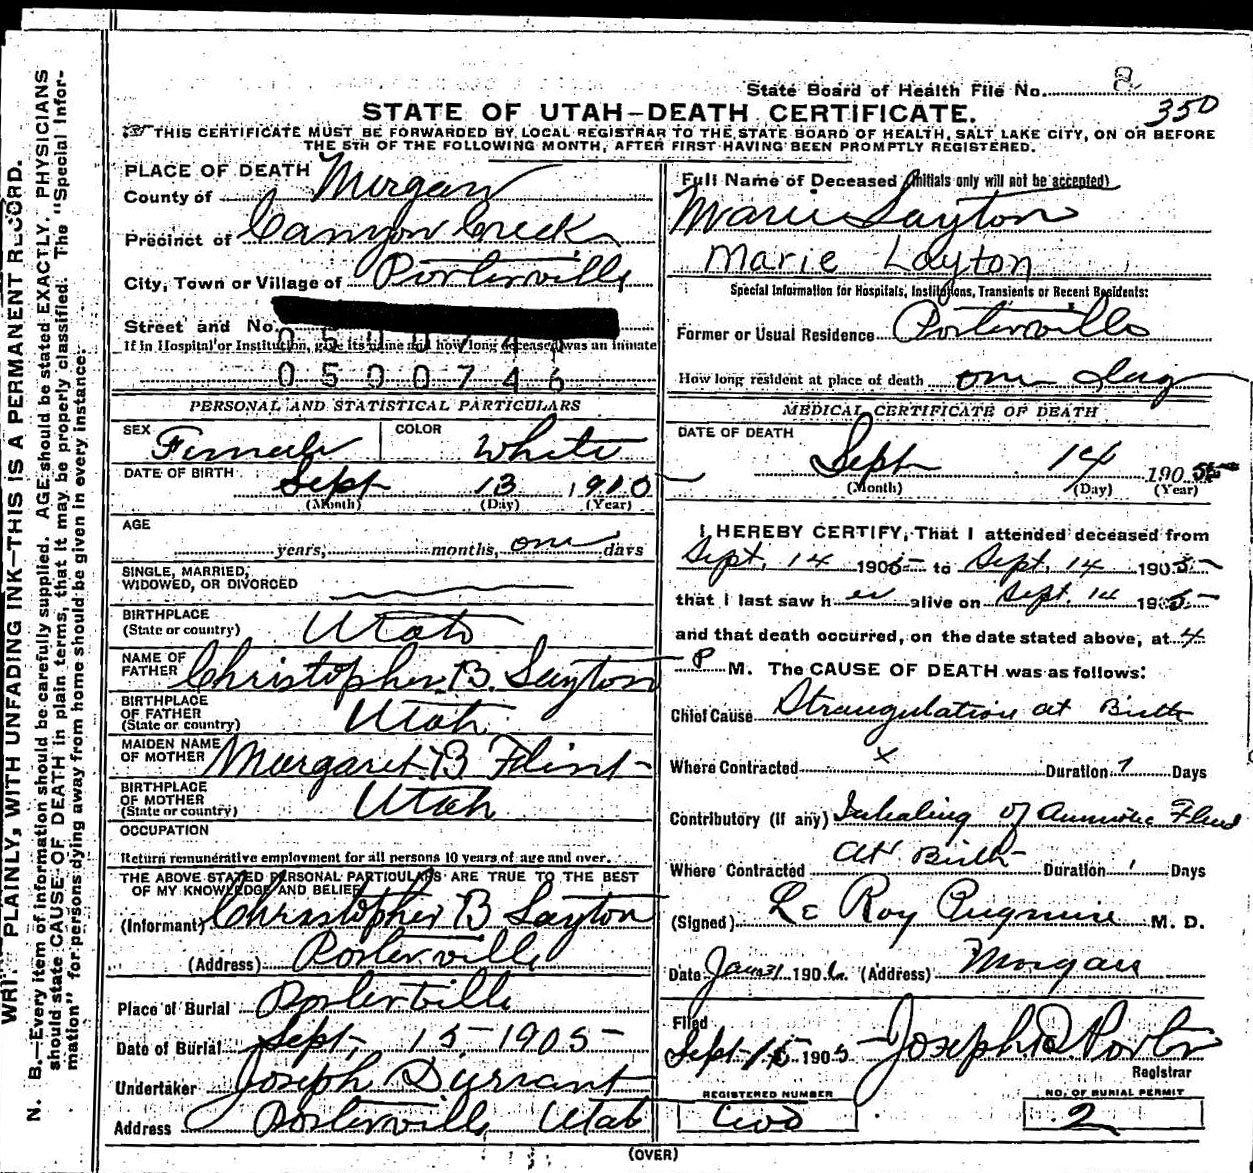 State Board of Health File No. 8
350
STATE OF UTAH—DEATH CERTIFICATE.
THIS CERTIFICATE MUST BE FORWARDED BY LOCAL REGISTRAR TO THE STATE BOARD OF HEALTH, SALT LAKE CITY, ON OR BEFORE
THE 5TH OF THE FOLLOWING MONTH, AFTER FIRST HAVING BEEN PROMPTLY REGISTERED.
WRITE PLAINLY, WITH UNFADING INK—THIS IS A PERMANENT RECORD.
N. B.—Every item of information should be carefully supplied. AGE should be stated EXACTLY. PHYSICIANS
should state CAUSE OF DEATH in plain terms, that it may be properly classified. The "Special Infor-
mation" for persons dying away from home should be given in every instance.
PLACE OF DEATH
County of Morgan
Precinct of Canyon Creek
City, Town or Village of Porterville
Street and No.
If in Hospital or Institution, give its name and how long deceased was an inmate
0500746
PERSONAL AND STATISTICAL PARTICULARS
SEX Female COLOR White
DATE OF BIRTH Sept 13 1910
(Month) (Day) (Year)
AGE
years, months, one days
SINGLE, MARRIED,
WIDOWED, OR DIVORCED
BIRTHPLACE
(State or country) Utah
NAME OF
FATHER Christopher B. Layton
BIRTHPLACE
OF FATHER
(State or country) Utah
MAIDEN NAME
OF MOTHER Margaret B Flint
BIRTHPLACE
OF MOTHER
(State or country) Utah
OCCUPATION
Return remunerative employment for all persons 10 years of age and over.
THE ABOVE STATED PERSONAL PARTICULARS ARE TRUE TO THE BEST
OF MY KNOWLEDGE AND BELIEF
(Informant) Christopher B Layton
(Address) Porterville
Place of Burial Porterville
Date of Burial Sept. 15 1905
Undertaker Joseph Durrant
Address Porterville Utah
Full Name of Deceased (Initials only will not be accepted)
Marie Layton
Marie Layton
Special Information for Hospitals, Institutions, Transients or Recent Residents:
Former or Usual Residence Porterville
How long resident at place of death one day
MEDICAL CERTIFICATE OF DEATH
DATE OF DEATH
Sept 14 1905
(Month) (Day) (Year)
I HEREBY CERTIFY, That I attended deceased from
Sept. 14 1905 to Sept. 14 1905
that I last saw her alive on Sept. 14 1905
and that death occurred, on the date stated above, at 4
P M. The CAUSE OF DEATH was as follows:
Chief Cause Strangulation at Birth
Where Contracted x Duration 1 Days
Contributory (if any) Inhaling of Amniotic Fluid
at Birth
Where Contracted Duration 1 Days
(Signed) Le Roy Pugmire M. D.
Date Jan 31 1906 (Address) Morgan
Filed
Sept 15 1905 Joseph R. Porter
Registrar
REGISTERED NUMBER NO. OF BURIAL PERMIT
two 2
(OVER)